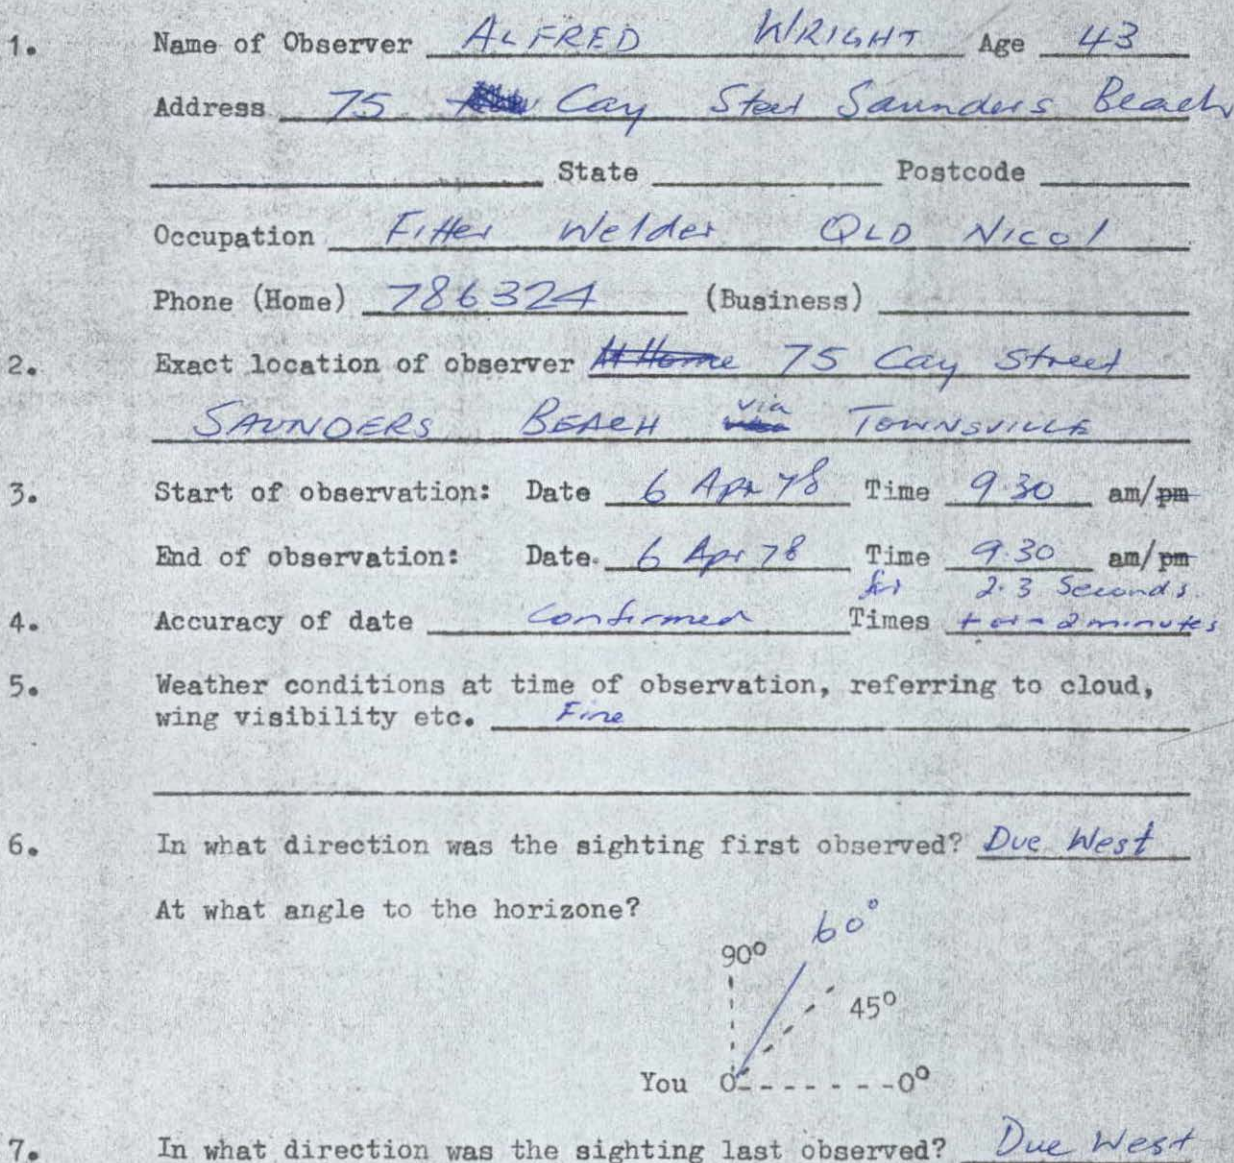 1. Name of Observer ALFRED WRIGHT Age 43
Address 75 Cay Steet Saunders Beach
State Postcode
Occupation Fitter Welder QLD Nicol
Phone (Home) 786324 (Business)
2. Exact location of observer At Home 75 Cay Street
SAUNDERS BEACH via TOWNSVILLE
3. Start of observation: Date 6 Apr 78 Time 9.30 am/pm
End of observation: Date. 6 Apr 78 Time 9.30 am/pm
for 2.3 Seconds.
4. Accuracy of date Confirmed Times + or - 2 minutes
5. Weather conditions at time of observation, referring to cloud,
wing visibility etc. Fine
6. In what direction was the sighting first observed? Due West
At what angle to the horizone?
60°
90°
45°
You 0 0°
7. In what direction was the sighting last observed? Due West